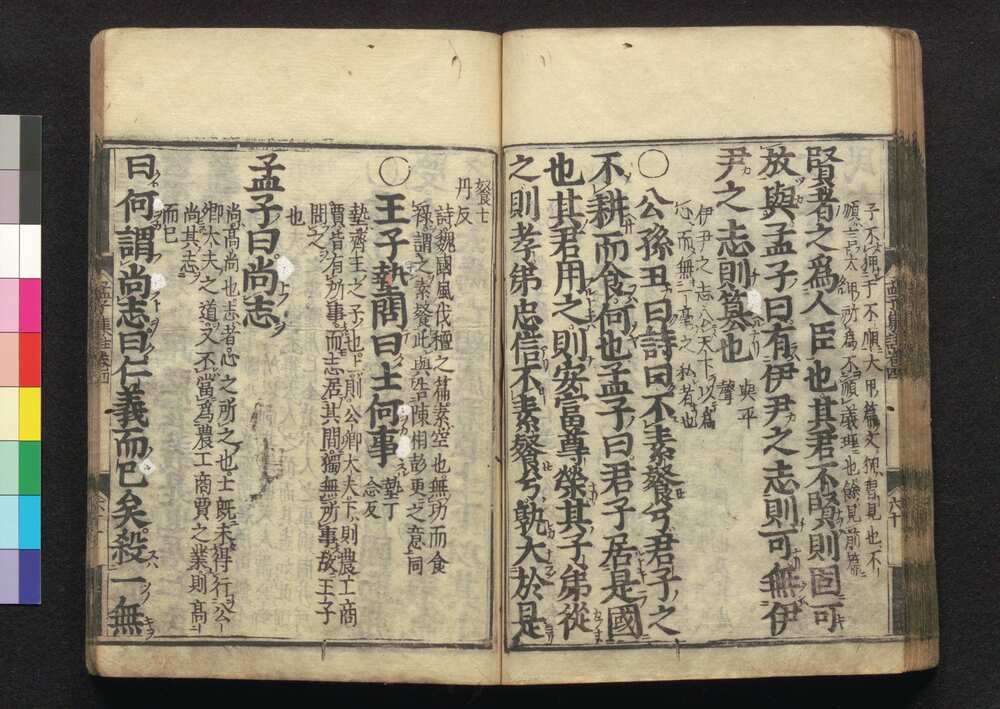 子不狎于不順大甲篇文狎習見也不
順言太甲所為不順義理也餘見前篇
賢者之爲人臣也其君不賢則固可
放與孟子曰有伊尹之志則可無伊
尹之志則篡也
與平
聲
伊尹之志公天下以爲
心而無一毫之私者也
〇公孫丑曰詩曰不素餐兮君子之
不耕而食何也孟子曰君子居是國
也其君用之則安富尊榮其子弟從
之則孝弟忠信不素餐兮孰大於是
餐士
丹反
詩魏國風伐檀之篇素空也無功而食
祿謂之素餐此與告陳相彭更之意同
〇王子墊問曰士何事
墊丁
念反
墊齊王之子也上則公卿大夫下則農工商
賈皆有所事而志居其間獨無所事故王子
問之
也
孟子曰尚志
尚高尚也志者心之所之也士既未得行公
卿大夫之道又不當爲農工商賈之業則髙
尚其志
而已
曰何謂尚志曰仁義而已矣殺一無
孟子集註卷四
六十